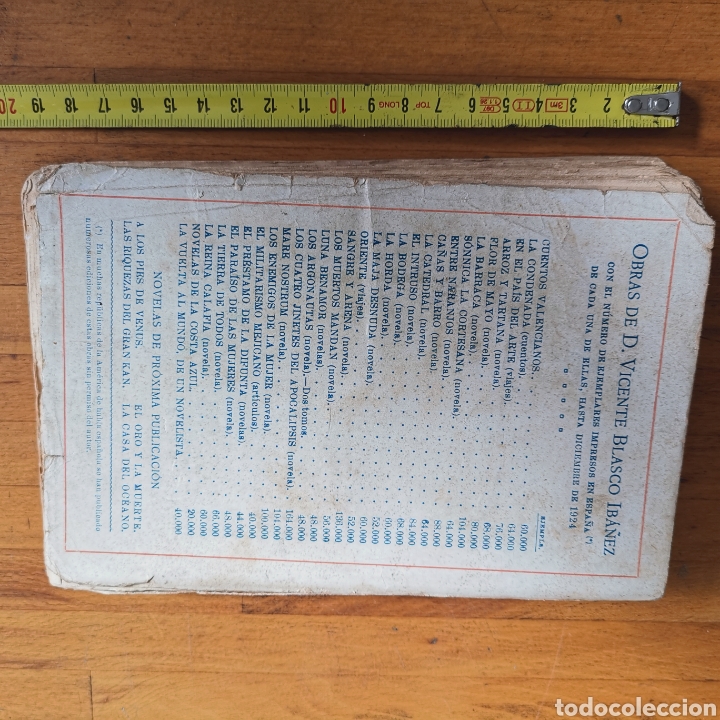 OBRAS DE D. VICENTE BLASCO IBÁÑEZ
CON EL NÚMERO DE EJEMPLARES IMPRESOS EN ESPAÑA (*)
DE CADA UNA DE ELLAS, HASTA DICIEMBRE DE 1924
EJEMPLS.
CUENTOS VALENCIANOS. 60.000
LA CONDENADA (cuentos). 64.000
EN EL PAÍS DEL ARTE (viajes). 76.000
ARROZ Y TARTANA (novela). 68.000
FLOR DE MAYO (novela).
LA BARRACA (novela). 80.000
SÓNNICA LA CORTESANA (novela).
ENTRE NARANJOS (novela). 104.000
CAÑAS Y BARRO (novela). 88.000
LA CATEDRAL (novela). 64.000
EL INTRUSO (novela). 84.000
LA BODEGA (novela). 68.000
LA HORDA (novela). 60.000
LA MAJA DESNUDA (novela). 52.000
ORIENTE (viajes). 60.000
SANGRE Y ARENA (novela). 52.000
LOS MUERTOS MANDAN (novela). 136.000
LUNA BENAMOR (novelas). 56.000
LOS ARGONAUTAS (novela).—Dos tomos. 48.000
LOS CUATRO JINETES DEL APOCALIPSIS (novela). 48.000
MARE NOSTRUM (novela). 164.000
LOS ENEMIGOS DE LA MUJER (novela). 104.000
EL MILITARISMO MEJICANO (artículos). 100.000
EL PRÉSTAMO DE LA DIFUNTA (novelas). 40.000
EL PARAÍSO DE LAS MUJERES (novela). 44.000
LA TIERRA DE TODOS (novela). 48.000
LA REINA CALAFIA (novela). 60.000
NOVELAS DE LA COSTA AZUL. 20.000
LA VUELTA AL MUNDO, DE UN NOVELISTA. 40.000
NOVELAS DE PRÓXIMA PUBLICACIÓN
A LOS PIES DE VENUS. EL ORO Y LA MUERTE.
LAS RIQUEZAS DEL GRAN KAN. LA CASA DEL OCÉANO.
(*) En muchas repúblicas de la América de habla española se han publicado
numerosas ediciones de estas obras sin permiso del autor.
20 19 18 17 16 15 14 13 12 11 10 9 8 7 6 5 4 3 2
TOP LONG
II
3m
todocoleccion
todocoleccion.net